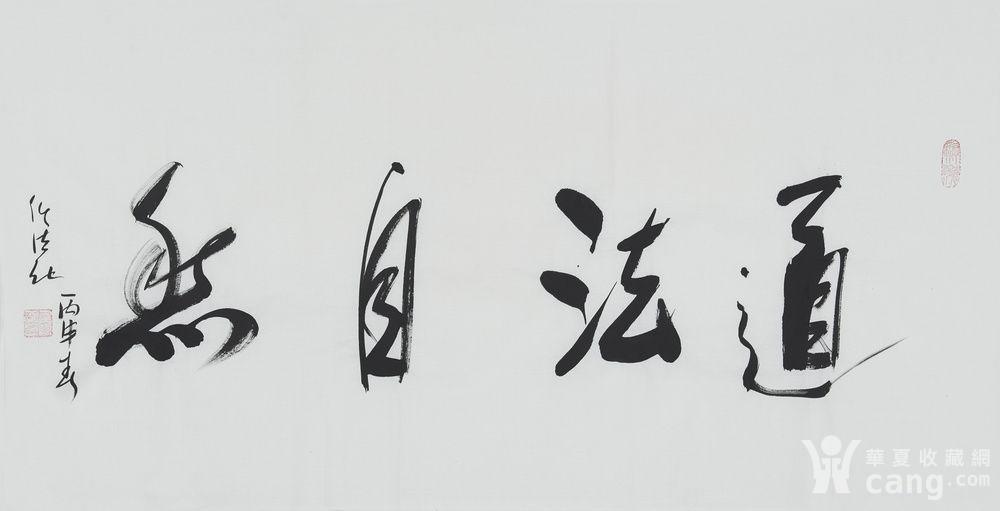 道法自然
丙申春
華夏收藏網
cang.com